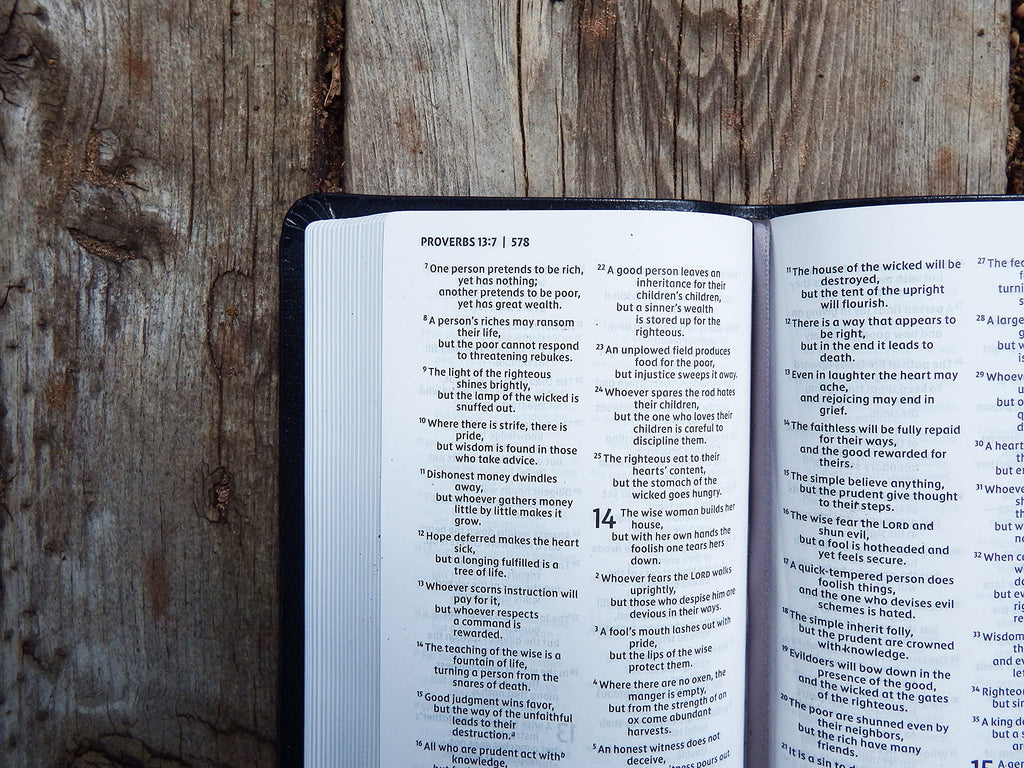 PROVERBS 13:7 | 578
7 One person pretends to be rich,
yet has nothing;
another pretends to be poor,
yet has great wealth.
8 A person's riches may ransom
their life,
but the poor cannot respond
to threatening rebukes.
9 The light of the righteous
shines brightly,
but the lamp of the wicked is
snuffed out.
10 Where there is strife, there is
pride,
but wisdom is found in those
who take advice.
11 Dishonest money dwindles
away,
but whoever gathers money
little by little makes it
grow.
12 Hope deferred makes the heart
sick,
but a longing fulfilled is a
tree of life.
13 Whoever scorns instruction will
pay for it,
but whoever respects
a command is
rewarded.
14 The teaching of the wise is a
fountain of life,
turning a person from the
snares of death.
15 Good judgment wins favor,
but the way of the unfaithful
leads to their
destruction.a
16 All who are prudent act withb
knowledge,
22 A good person leaves an
inheritance for their
children's children,
but a sinner's wealth
is stored up for the
righteous.
23 An unplowed field produces
food for the poor,
but injustice sweeps it away.
24 Whoever spares the rod hates
their children,
but the one who loves their
children is careful to
discipline them.
25 The righteous eat to their
hearts' content,
but the stomach of the
wicked goes hungry.
14 The wise woman builds her
house,
but with her own hands the
foolish one tears hers
down.
2 Whoever fears the LORD walks
uprightly,
but those who despise him are
devious in their ways.
3 A fool's mouth lashes out with
pride,
but the lips of the wise
protect them.
4 Where there are no oxen, the
manger is empty,
but from the strength of an
ox come abundant
harvests.
5 An honest witness does not
deceive,
witness pours out
11 The house of the wicked will be
destroyed,
but the tent of the upright
will flourish.
12 There is a way that appears to
be right,
but in the end it leads to
death.
13 Even in laughter the heart may
ache,
and rejoicing may end in
grief.
14 The faithless will be fully repaid
for their ways,
and the good rewarded for
theirs.
15 The simple believe anything,
but the prudent give thought
to their steps.
16 The wise fear the LORD and
shun evil,
but a fool is hotheaded and
yet feels secure.
17 A quick-tempered person does
foolish things,
and the one who devises evil
schemes is hated.
18 The simple inherit folly,
but the prudent are crowned
with knowledge.
19 Evildoers will bow down in the
presence of the good,
and the wicked at the gates
of the righteous.
20 The poor are shunned even by
their neighbors,
but the rich have many
friends.
21 It is a sin to
27 The
28 A large
29
30 A heart
31
32 When
33 Wisdom
and
34
but
35 A king
15